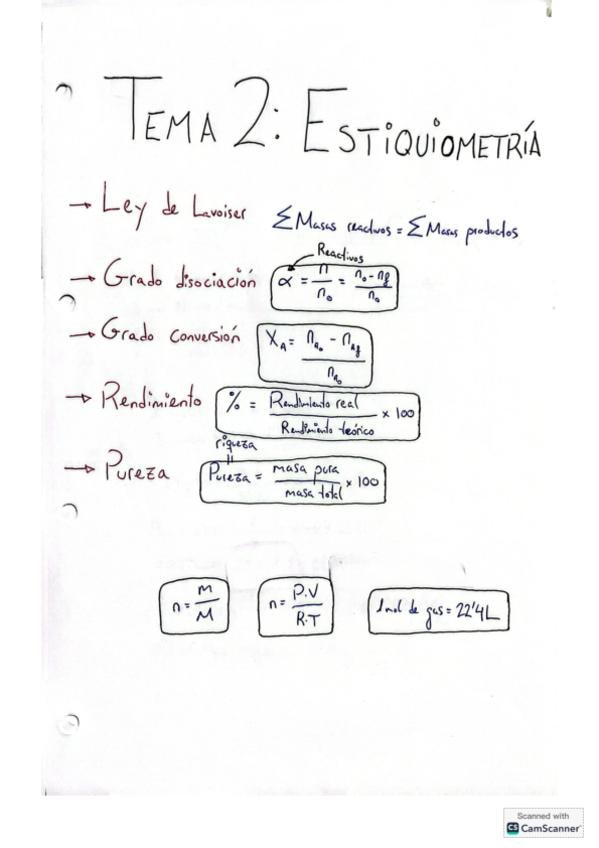 TEMA 2: ESTIQUIOMETRÍA
→ Ley de Lavoiser ΣMasas reactivos = ΣMasas productos
Reactivos
→ Grado disociación α = n/n₀ = n₀-nf/n₀
→ Grado conversión X_A = n_A₀ - n_Af / n_A₀
→ Rendimiento % = Rendimiento real / Rendimiento teórico × 100
riqueza
||
→ Pureza Pureza = masa pura / masa total × 100
n = m/M n = P.V/R.T 1mol de gas = 22'4L
Scanned with
CS CamScanner